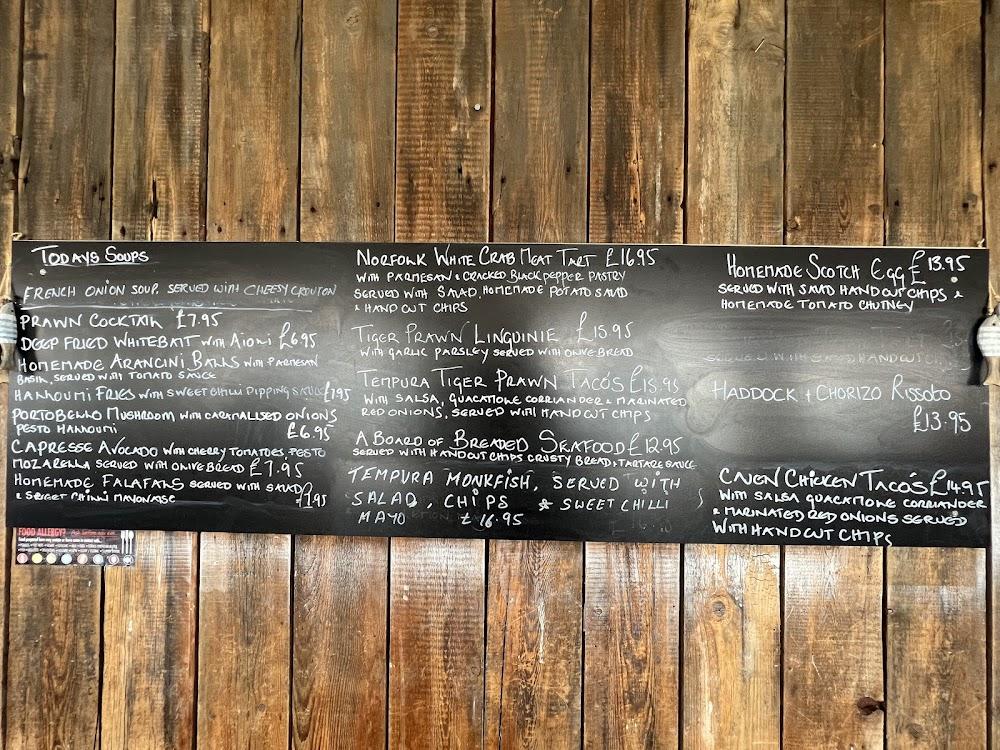 TODAYS SOUPS
FRENCH ONION SOUP SERVED WITH CHEESY CROUTON
PRAWN COCKTAIL £7.95
DEEP FRIED WHITEBAIT WITH AIOLI £6.95
HOMEMADE ARANCINI BALLS WITH PARMESAN
BASIL, SERVED WITH TOMATO SAUCE
HALLOUMI FRIES WITH SWEET CHILLI DIPPING SAUCE £7.95
PORTOBELLO MUSHROOM WITH CARAMALISED ONIONS
PESTO HALLOUMI £6.95
CAPRESSE AVOCADO WITH CHERRY TOMATOES, PESTO
MOZARELLA SERVED WITH OLIVE BREAD £7.95
HOMEMADE FALAFALS SERVED WITH SALAD
& SWEET CHILLI MAYONAISE £7.95
FOOD ALLERGY?
NORFOLK WHITE CRAB MEAT TART £16.95
WITH PARMESAN & CRACKED BLACK PEPPER PASTRY
SERVED WITH SALAD, HOMEMADE POTATO SALAD
& HAND CUT CHIPS
TIGER PRAWN LINGUINIE £15.95
WITH GARLIC PARSLEY SERVED WITH OLIVE BREAD
TEMPURA TIGER PRAWN TACO'S £15.95
WITH SALSA, GUACAMOLE CORRIANDER & MARINATED
RED ONIONS, SERVED WITH HAND CUT CHIPS
A BOARD OF BREADED SEAFOOD £12.95
SERVED WITH HANDCUT CHIPS CRUSTY BREAD & TARTARE SAUCE
TEMPURA MONKFISH, SERVED WITH
SALAD, CHIPS & SWEET CHILLI
MAYO £16.95
HOMEMADE SCOTCH EGG £13.95
SERVED WITH SALAD HAND CUT CHIPS &
HOMEMADE TOMATO CHUTNEY
SERVED WITH SALAD HANDCUT
HADDOCK & CHORIZO RISSOTO
£13.95
CAJEN CHICKEN TACO'S £14.95
WITH SALSA GUACAMOLE CORRIANDER
& MARINATED RED ONIONS SERVED
WITH HAND CUT CHIPS